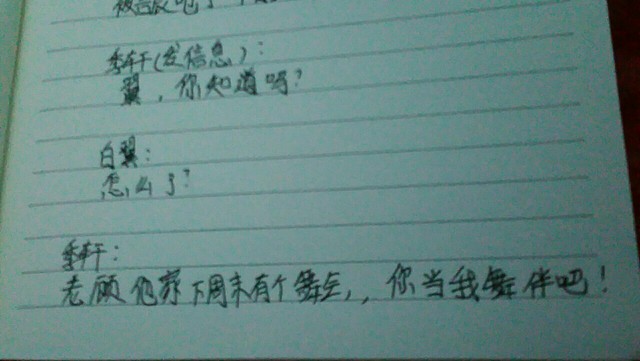 季轩(发信息):
翼，你知道吗?
白翼:
怎么了?
季轩:
老顾他家下周末有个舞会,，你当我舞伴吧!